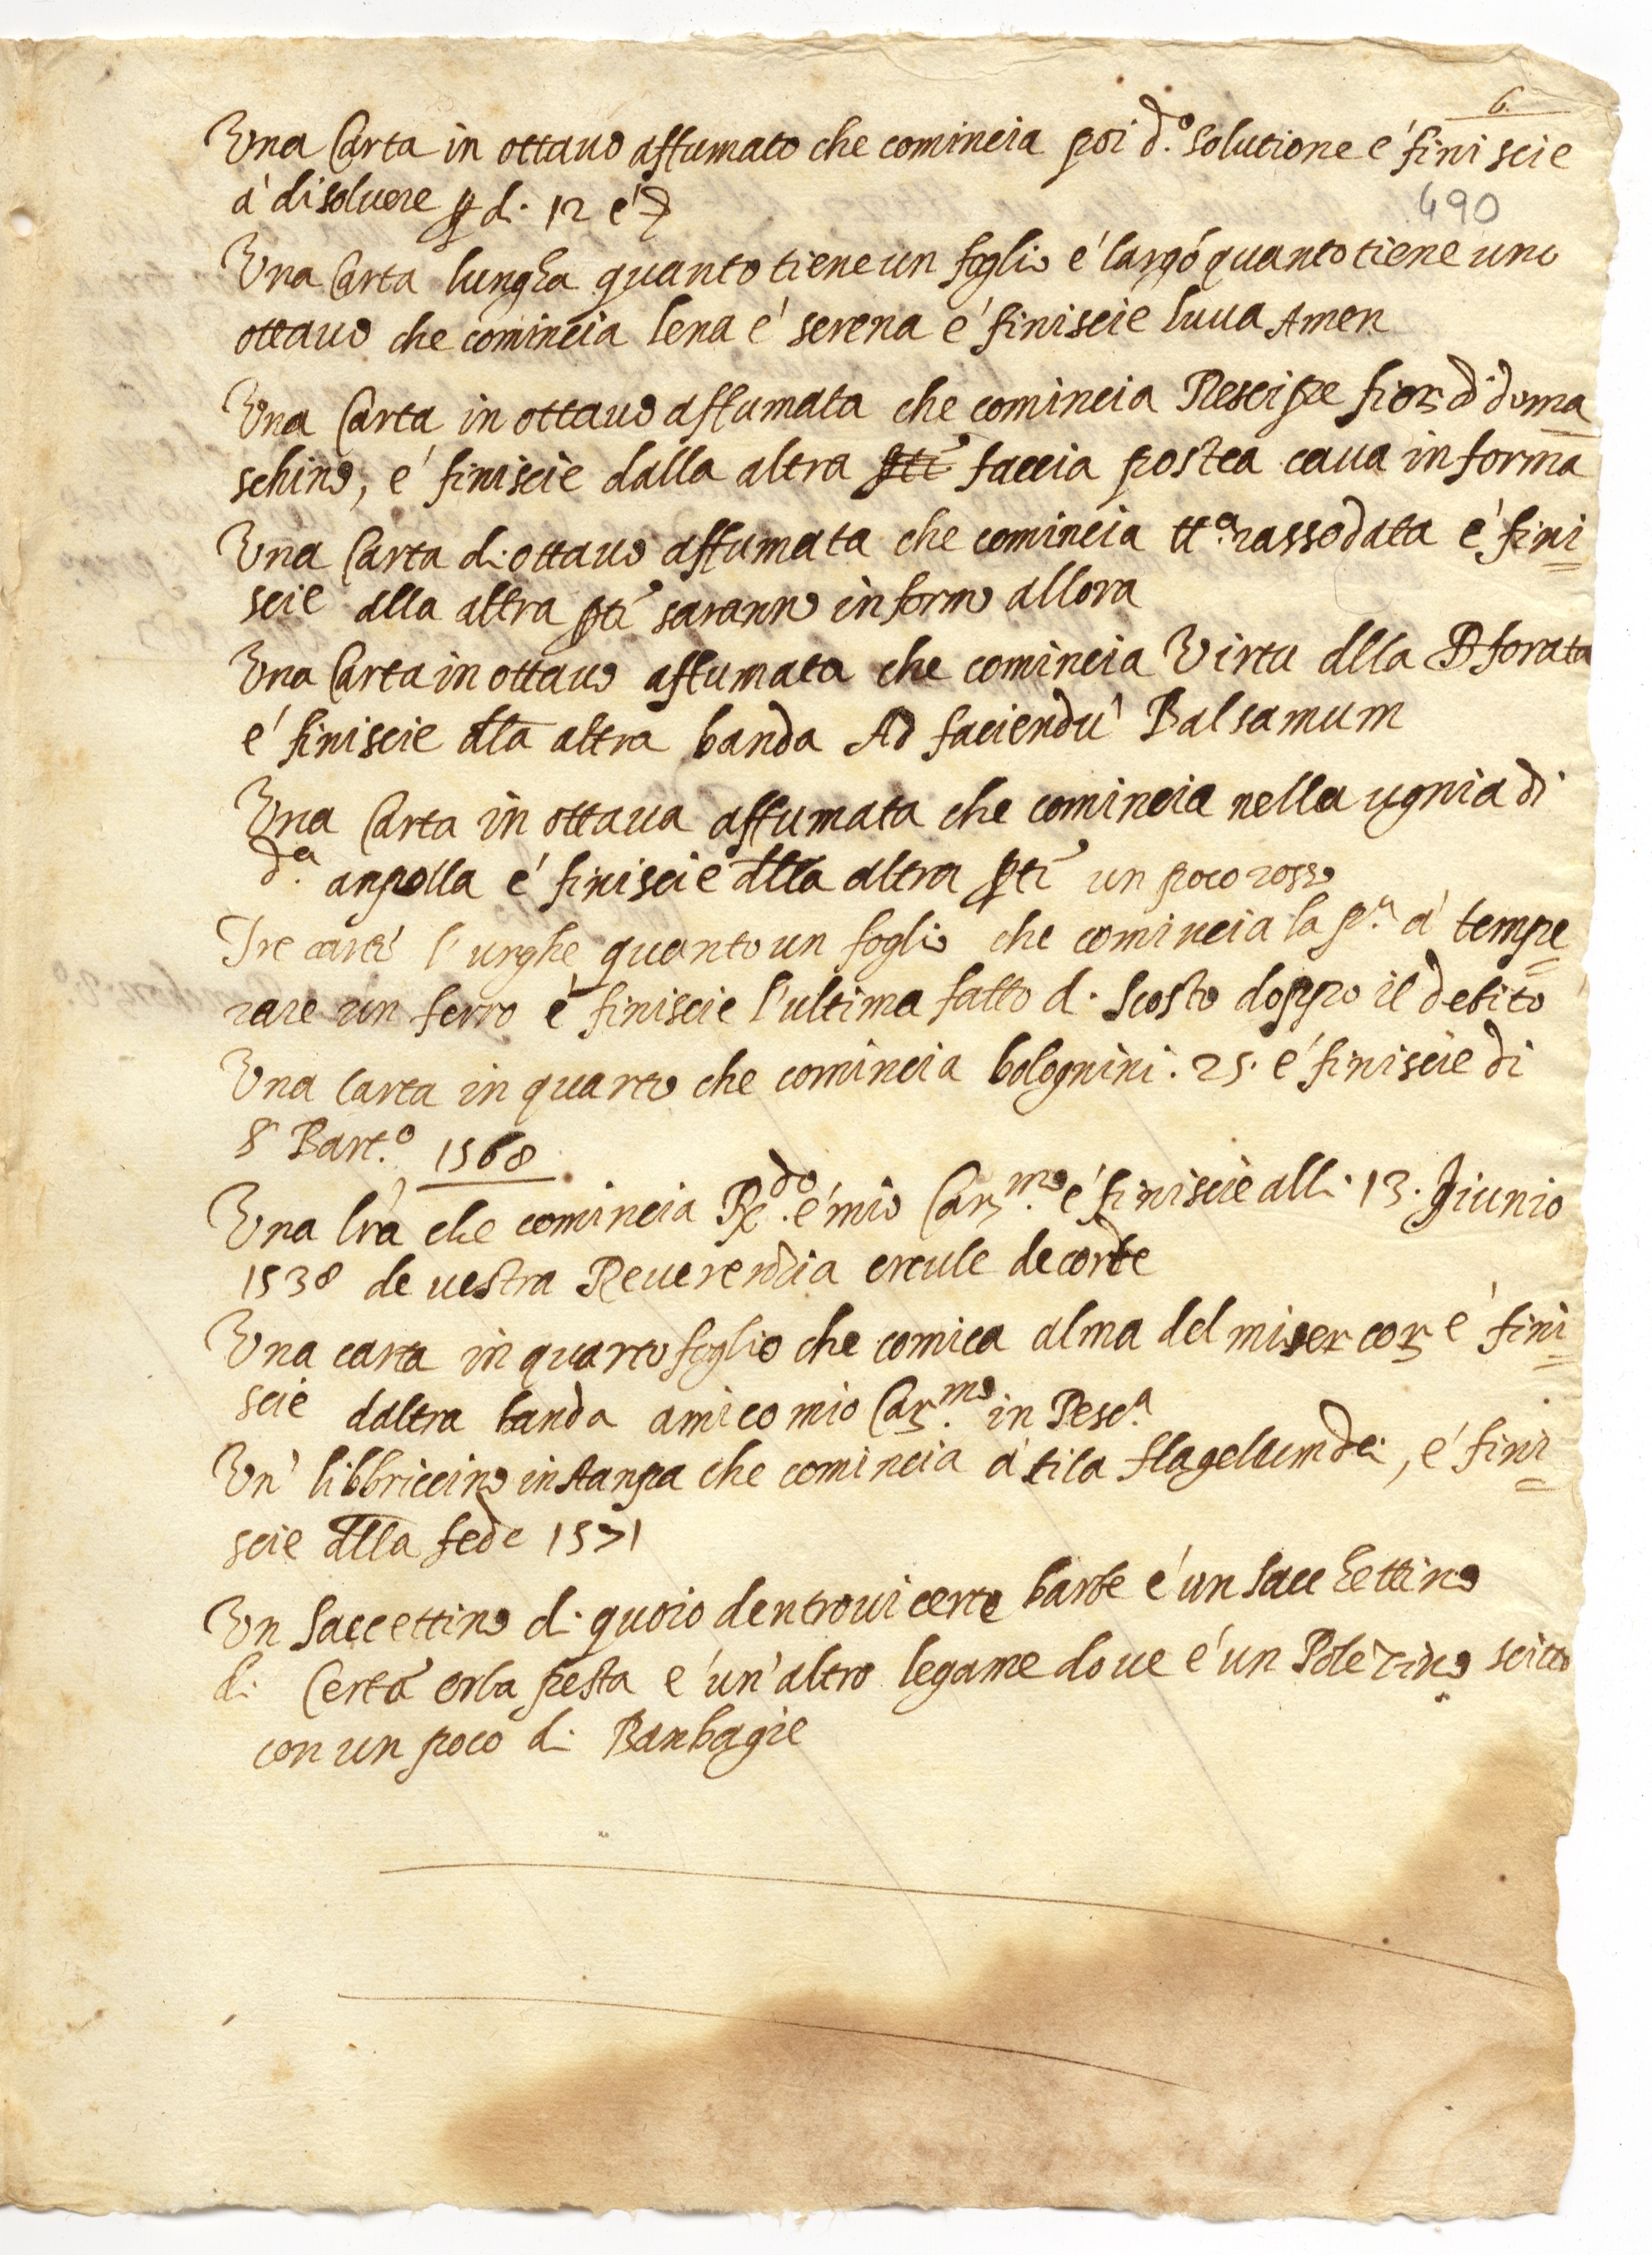 6.
Una Carta in ottavo affumato che comincia poi d.º solutione e' finiscie
490
à disolvere p di. 12 e'
Una Carta lungha quanto tiene un foglio e' largo quanto tiene uno
ottavo che comincia lena e' serena e' finiscie luva Amen
Una Carta in ottavo affumata che comincia Rescipe fior di doma
schino, e' finiscie dalla altra faccia postea cava in forma
Una Carta di ottavo affumata che comincia tt.ª rassodata e' fini=
scie alla altra pti saranno in forno allora
Una Carta in ottavo affumata che comincia Virtu dlla forata
e' finiscie dla altra banda Ad faciendu' Balsamum
Una Carta in ottava affumata che comincia nella ugnia di
d.ª anpolla e' finiscie dlla altra pti un poco rosso
Tre carti l'unghe quanto un foglio che comincia la p.ª a' tempe=
rare un ferro e' finiscie l'ultima fatto d. scosto doppo il debito
Una Carta in quarto che comincia bolognini. 25. e' finiscie di
8 Bart.º 1568
Una lra che comincia R.do e' mio Car.mo e' finiscie alli. 13. Giunio
1538 de vestra Reverendia ercule decorte
Una carta in quarto foglio che comica alma del miser cor e' fini=
scie daltra banda amico mio Car.mo in Pesc.ª
Un' libbriccino in stanpa che comincia a'tila flagellum dei, e' fini=
scie dlla fede 1571
Un Saccettino di quoio dentrovi certe barbe e' un sacchettino
di Certa erba pesta e' un'altro legame dove e' un Polizino scitto
con un poco di Banbagie